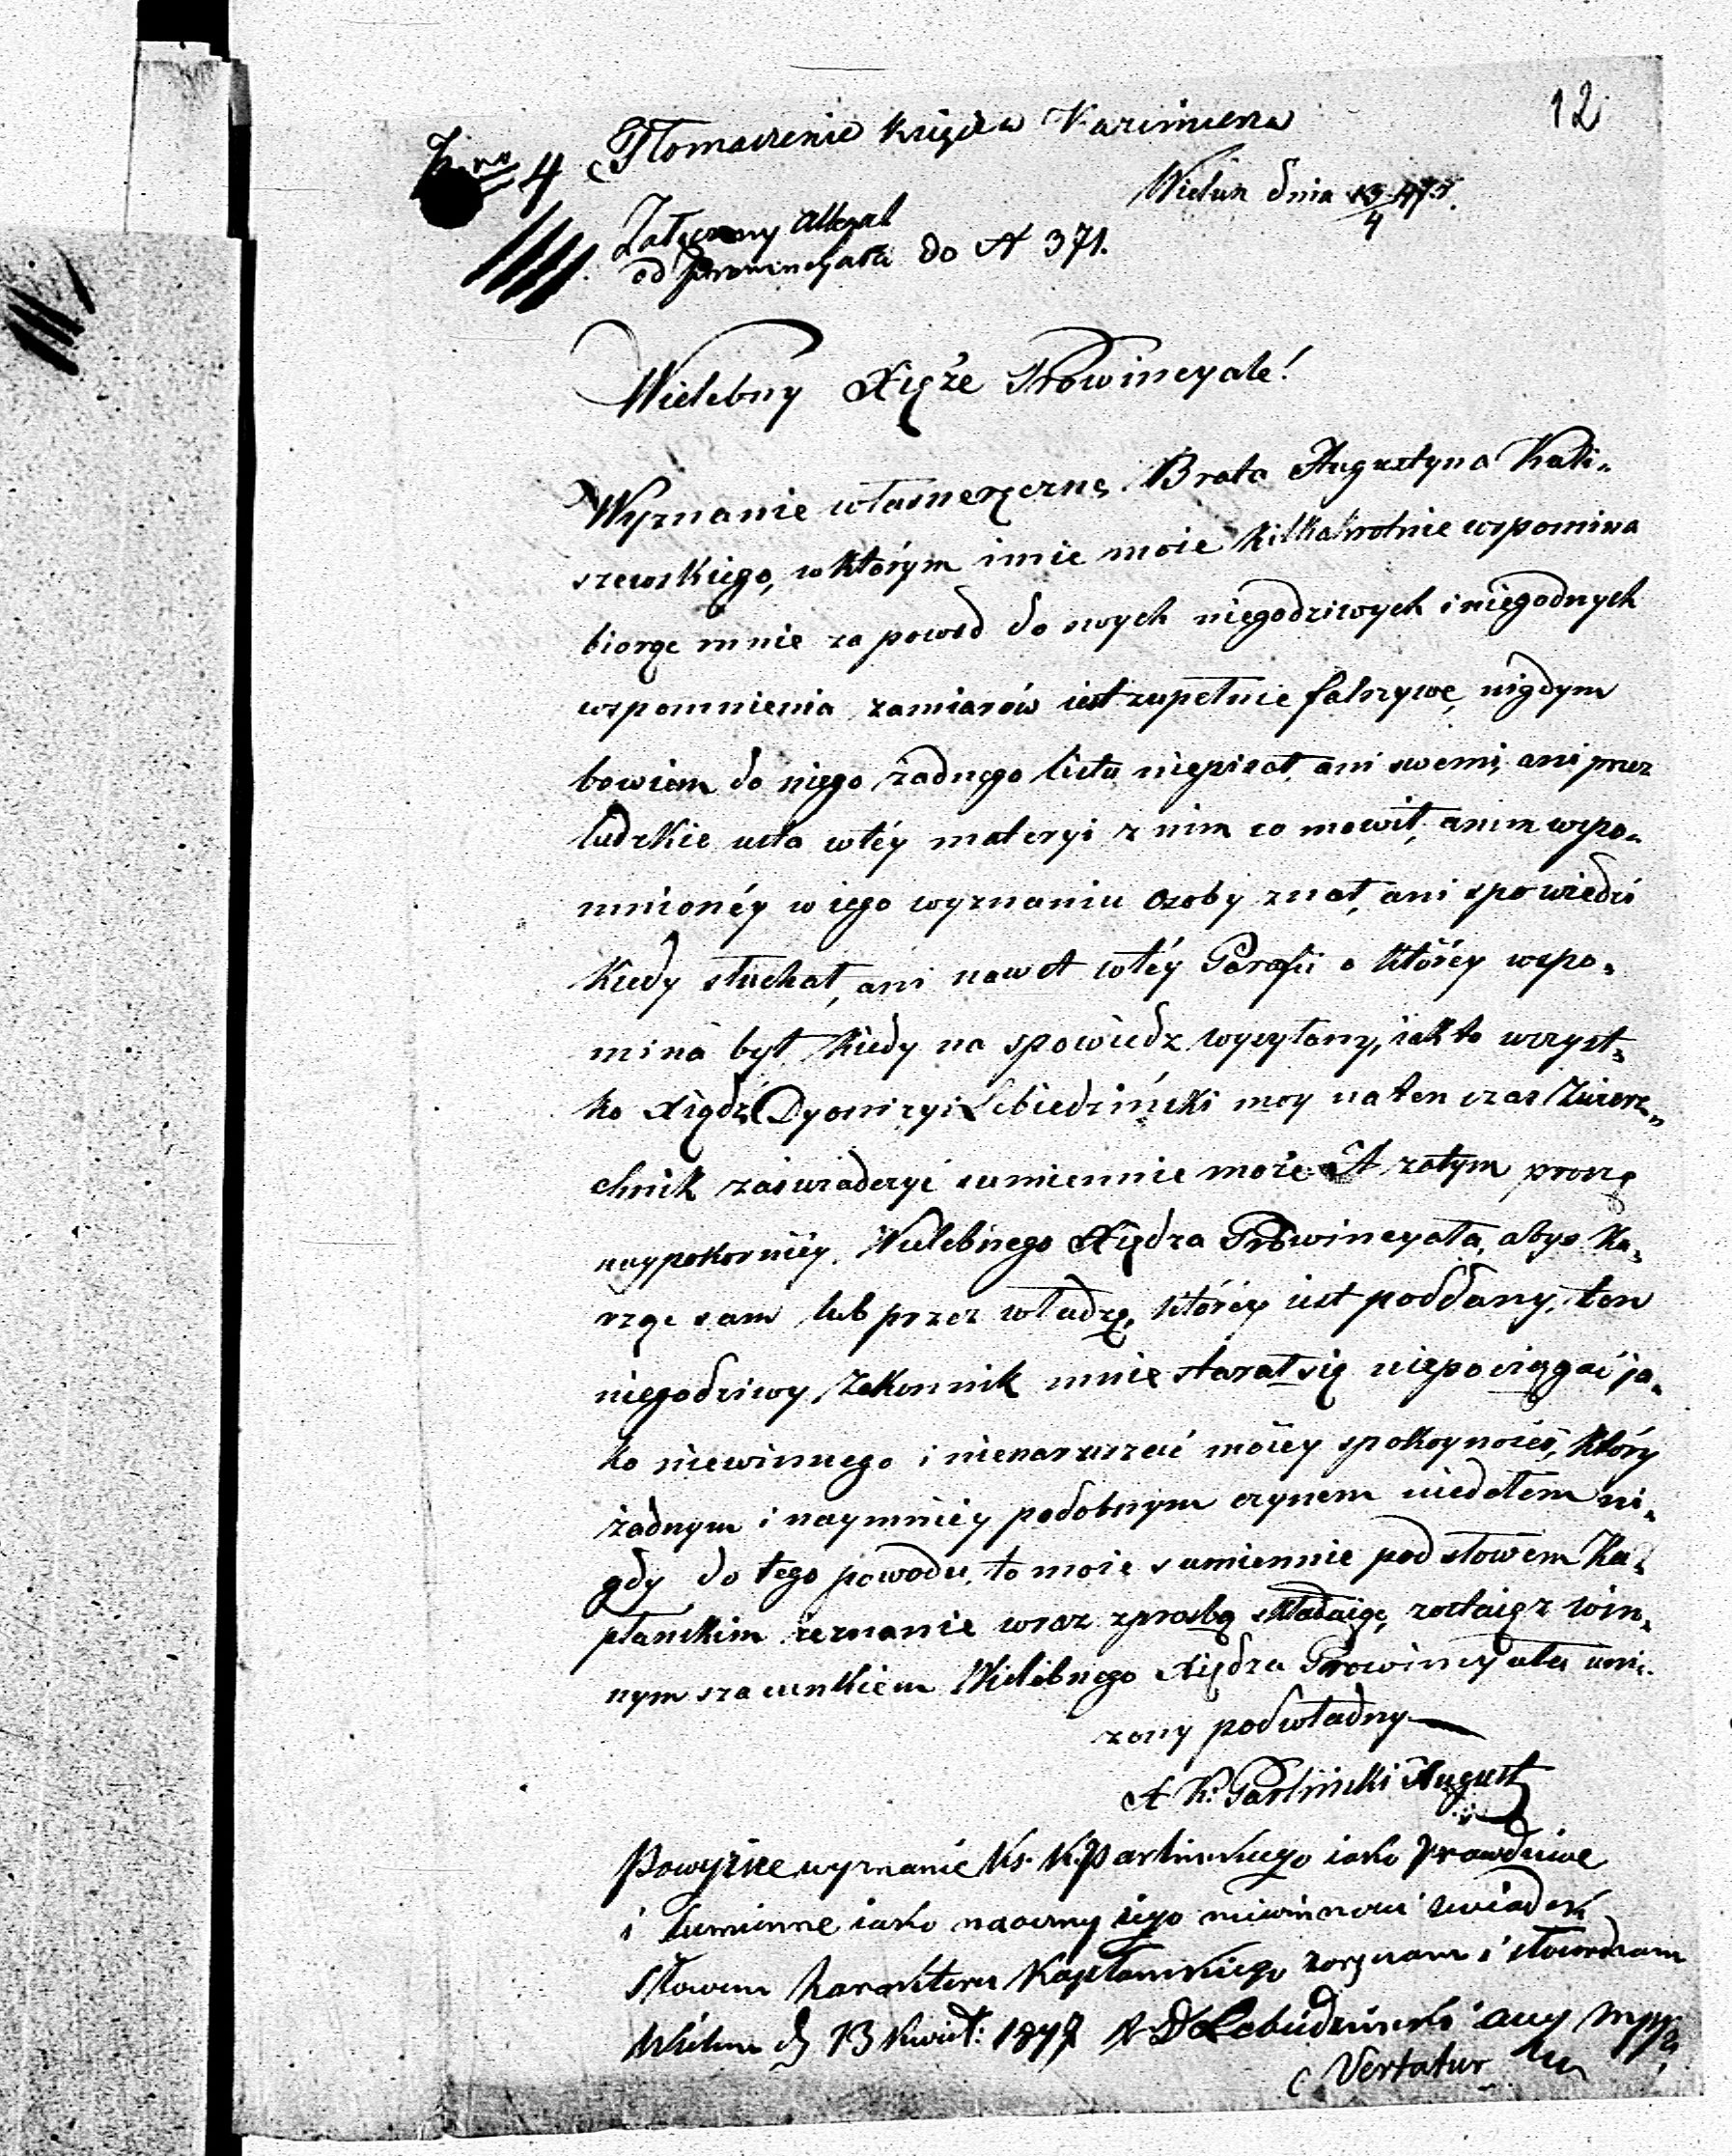 12
Nro 4
Tłomaczenie Księdza Kazimierza
Wieluń dnia 13/4
Załączony Allegat
od Prowincyała do N 371.
Wielebny Xięże Prowincyale!
Wyznanie własneręczne Brata Augustyna Kali-
szewskiego, w którym imie moie kilkakrotnie wspomina
biorąc mnie za powód do swych niegodziwych i niegodnych
wspomnienia zamiarów iest zupełnie fałszywe, nigdym
bowiem do niego żadnego listu niepisał, ani swemi, ani przez
ludzkie usta w téy materyi z nim co mowił, anim wspo-
mnionéy w iego wyznaniu Osoby znał, ani spowiedzi
kiedy słuchał, ani nawet w téy Parafii o któréy wspo-
mina był kiedy na spowiedz wysyłany, iak to wszyst-
ko Xiądz Dyonizyi Lebiedziński moy na ten czas Zwierz-
chnik zaswiadczyć sumiennie może. A zatym proszę
naypokorniéy Wielebnego Xiędza Prowincyała, abyś ka-
rząc sam lub przez władzę, któréy iest poddany, ten
niegodziwy Zakonnik mnie starał się niepociągać ja-
ko niewinnego i nienaruszać moiey spokoyności, który
żadnym i naymniéy podobnym czynem niedałem ni-
gdy do tego powodu, to moie sumiennie pod słowem Ka-
płańskim zeznanie wraz z prosbą składaiąc, zostaię z win-
nym szacunkiem Wielebnego Xiędza Prowincyała uni-
żony podwładny
X K. Parliński August
Powyższe wyznanie Ks. K. Parlińskiego iako prawdziwe
i sumienne iako naoczny iego niewinności świadek
Słowem harakteru Kapłańskiego zoręczam i stwierdzam
Wieluń d 13 Kwiet: X D Lebiedziński Aug mpp
Vertatur